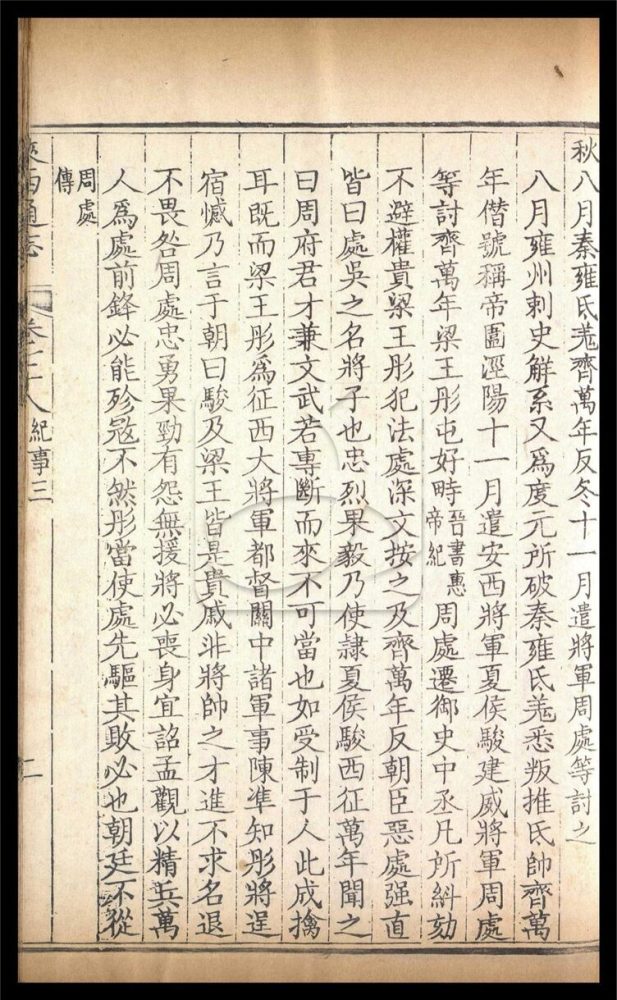 秋八月秦雍氐羌齊萬年反冬十一月遣將軍周處等討之
八月雍州刺史解系又為度元所破秦雍氐羌悉叛推氐帥齊萬
年僭號稱帝圍涇陽十一月遣安西將軍夏侯駿建威將軍周處
等討齊萬年梁王彤屯好畤晉書惠帝紀周處遷御史中丞凡所糾劾
不避權貴梁王彤犯法處深文按之及齊萬年反朝臣惡處强直
皆曰處吳之名將子也忠烈果毅乃使隷夏侯駿西征萬年聞之
曰周府君才兼文武若專斷而來不可當也如受制于人此成擒
耳既而梁王彤爲征西大將軍都督關中諸軍事陳準知彤將逞
宿憾乃言于朝曰駿及梁王皆是貴戚非將帥之才進不求名退
不畏咎周處忠勇果勁有怨無援將必喪身宜詔孟觀以精兵萬
人爲處前鋒必能殄寇不然彤當使處先驅其敗必也朝廷不從
周處傳
陝西通志 卷 八 紀事三 二